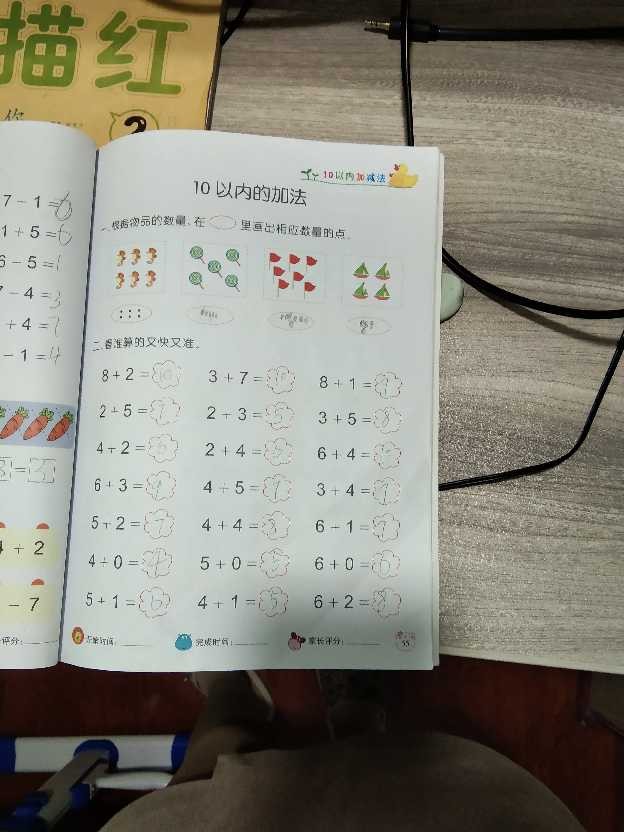 描红
7 - 1 = 6
1 + 5 = 6
6 - 5 = 1
7 - 4 = 3
+ 4 = 7
- 1 = 4
+ 2
- 7
评分:
10以内加减法
10 以内的加法
一、根据物品的数量,在 里画出相应数量的点。
二、看谁算的又快又准。
8 + 2 = 10 3 + 7 = 8 + 1 = 9
2 + 5 = 7 2 + 3 = 5 3 + 5 = 8
4 + 2 = 6 2 + 4 = 6 + 4 =
6 + 3 = 9 4 + 5 = 3 + 4 = 7
5 + 2 = 7 4 + 4 = 8 6 + 1 = 7
4 + 0 = 4 5 + 0 = 5 6 + 0 = 6
5 + 1 = 6 4 + 1 = 5 6 + 2 = 8
完成时间: 家长评分:
55